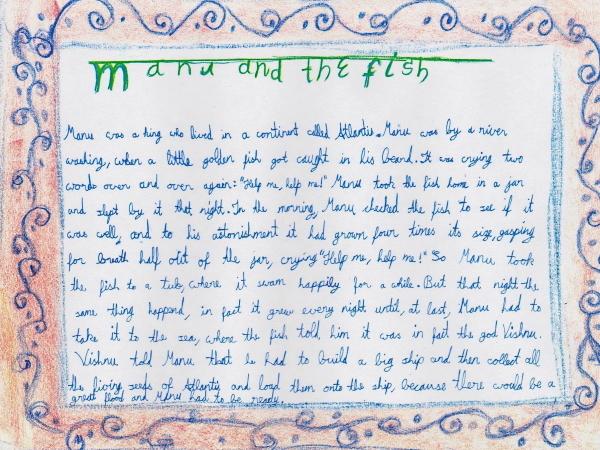 Manu and the fish
Manu was a king who lived in a continent called Atlantis. Manu was by a river
washing, when a little golden fish got caught in his beard. It was crying two
words over and over again: "Help me, help me!" Manu took the fish home in a jar
and slept by it that night. In the morning, Manu checked the fish to see if it
was well, and to his astonishment it had grown four times its size, gasping
for breath half out of the jar, crying "Help me, help me!" So Manu took
the fish to a lake, where it swam happily for a while. But that night the
same thing happend, in fact it grew every night until, at last, Manu had to
take it to the sea, where the fish told him it was in fact the god Vishnu.
Vishnu told Manu that he had to build a big ship and then collect all
the living seeds of Atlantis and load them onto the ship, because there would be a
great flood and Manu had to be ready.